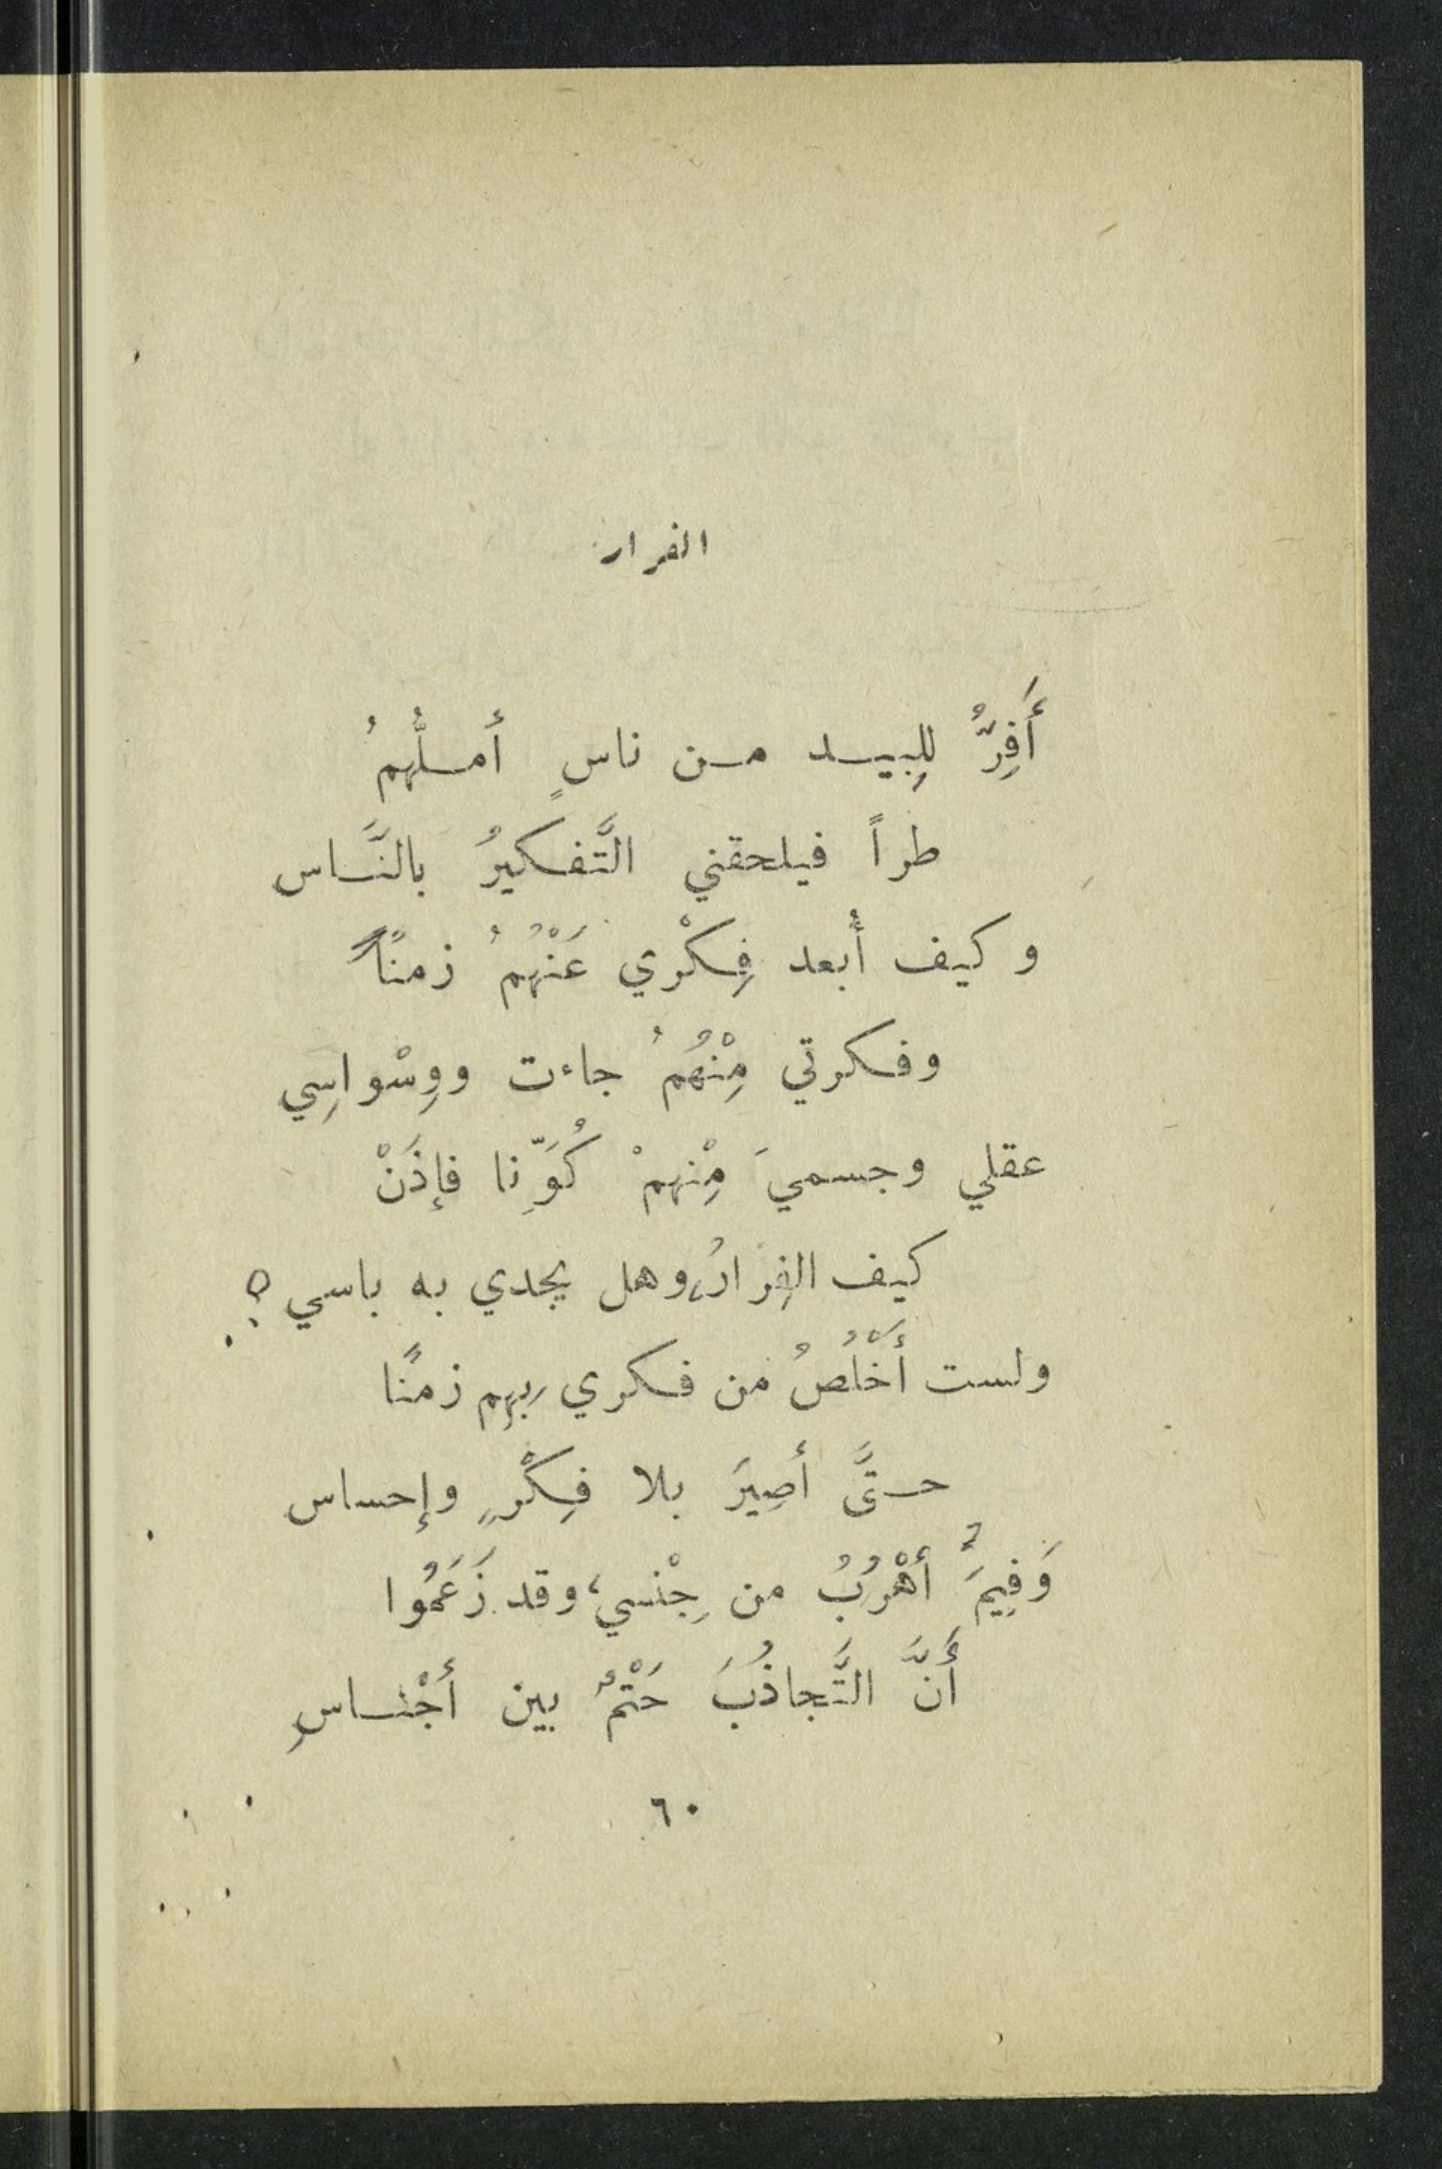 الفرار
أَفِرُّ لِلبِيد من ناسٍ أملُّهمُ
طراً فيلحقني التَّفكيرُ بالنَّاس
وكيف أُبعد فِكْري عَنْهُمُ زمنًا
وفكرتي مِنْهُمُ جاءت ووِسْواسِي
عقلي وجسميَ مِنْهمْ كُوِّنا فإِذَنْ
كيف الفِرارُ، وهل يجدي به باسي ؟
ولست أَخْلُصُ من فكري بهم زمنًا
حتَّى أصِيرَ بلا فِكْرٍ وإحساس
وَفِيمَ أَهْرُبُ من جِنْسي، وقد زَعَمُوا
أَنَّ التَّجاذُبَ حَتْمٌ بين أَجْناسِ
٦٠